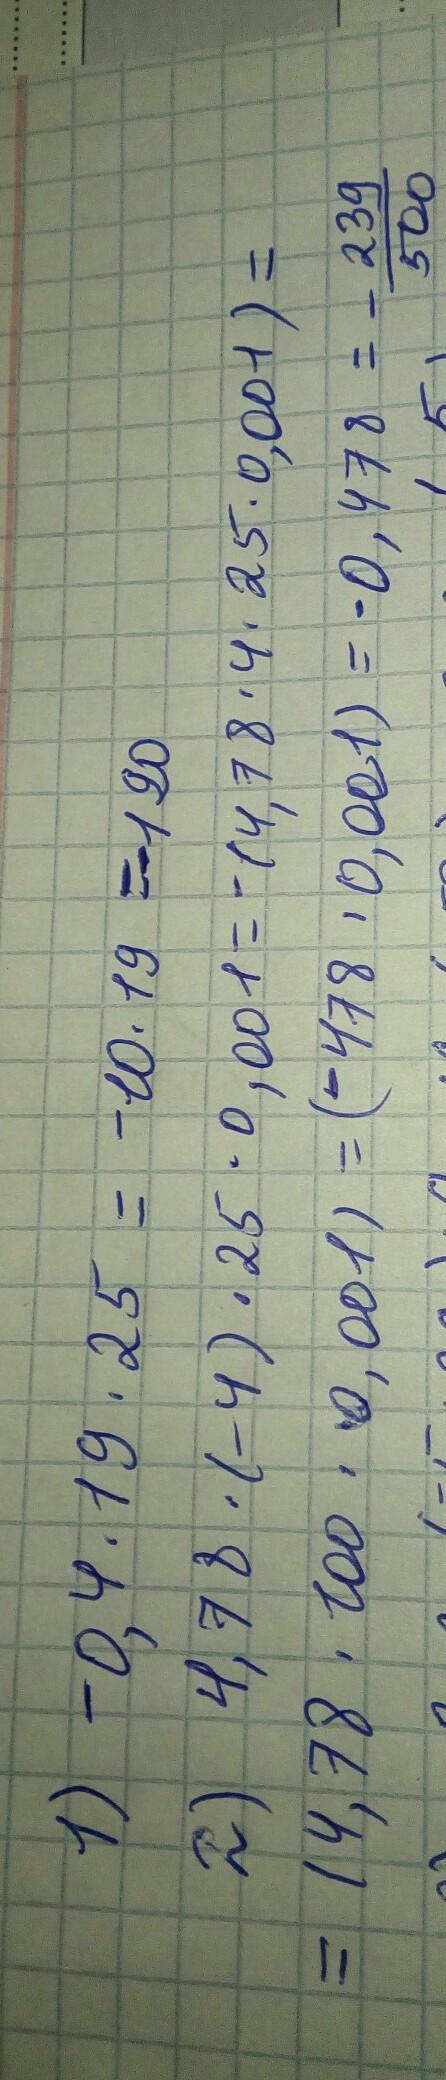 1) -0,4·19·25 = -10·19 = -190
2) 4,78·(-4)·25·0,001 = -(4,78·4·25·0,001) =
= (4,78·100·0,001) = (-478·0,001) = -0,478 = -239/500